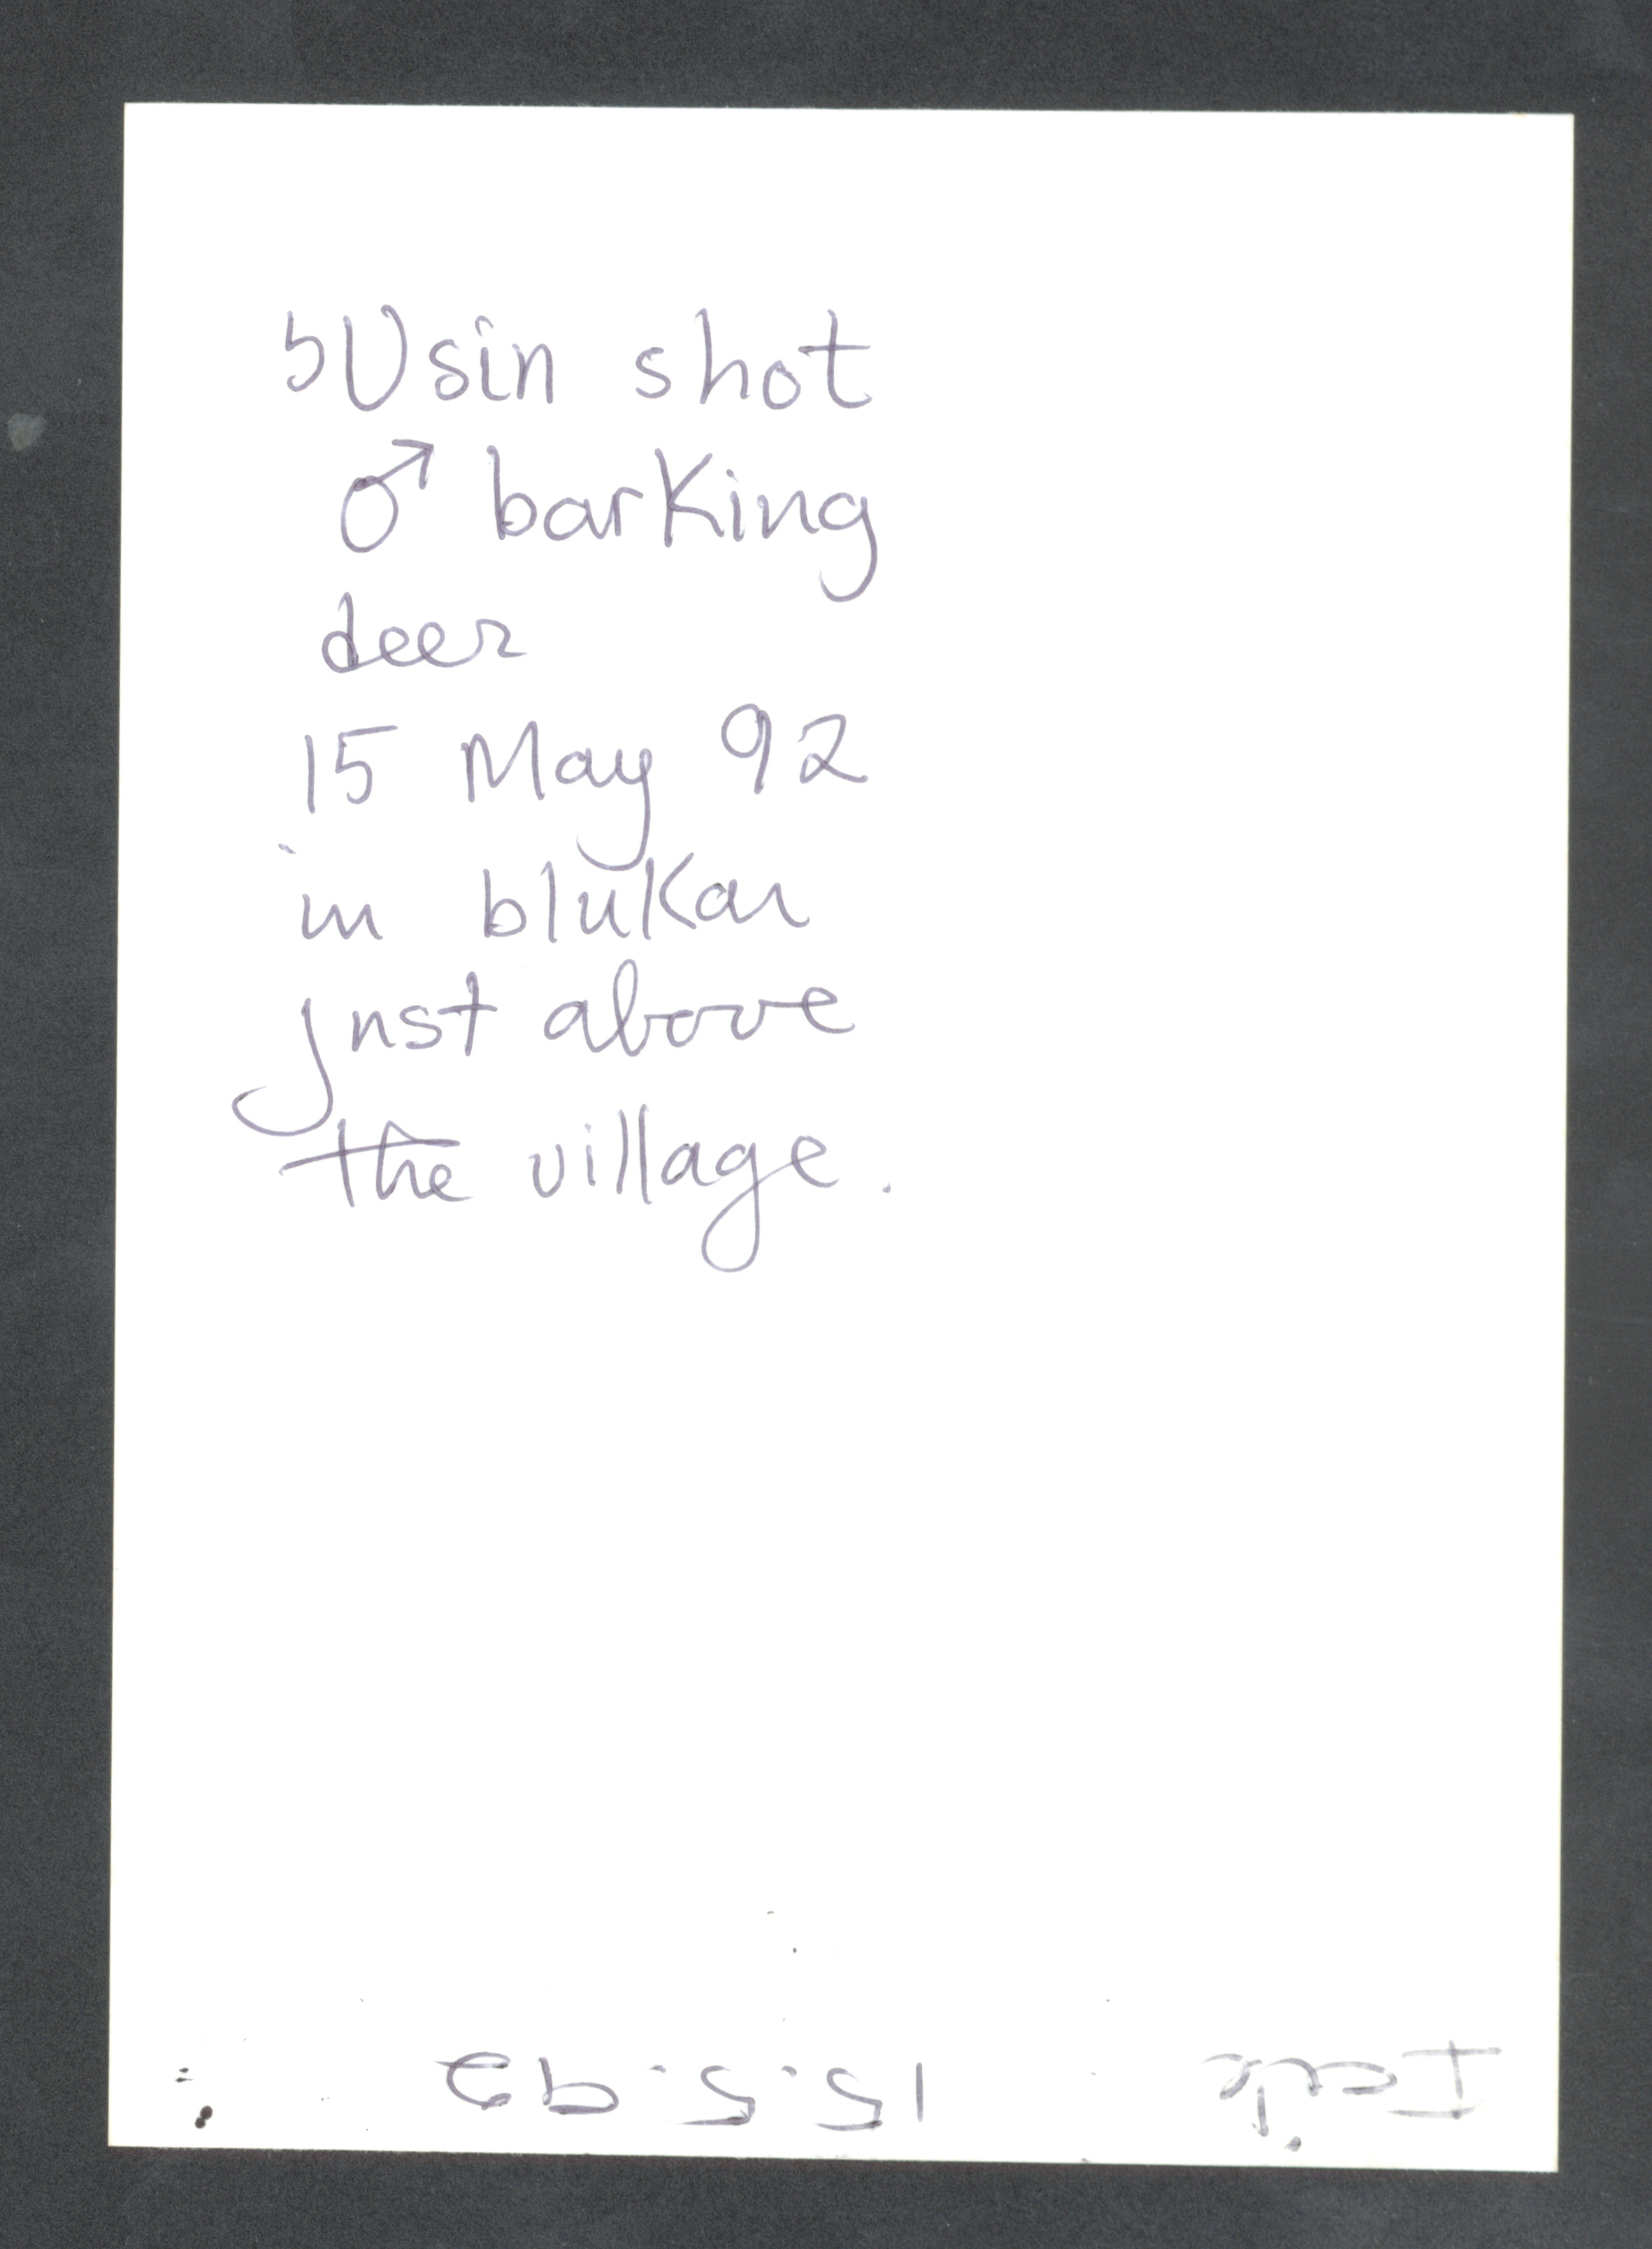 Usin shot
♂ barking
deer
15 May 92
in blukar
just above
the village.
15.5.92